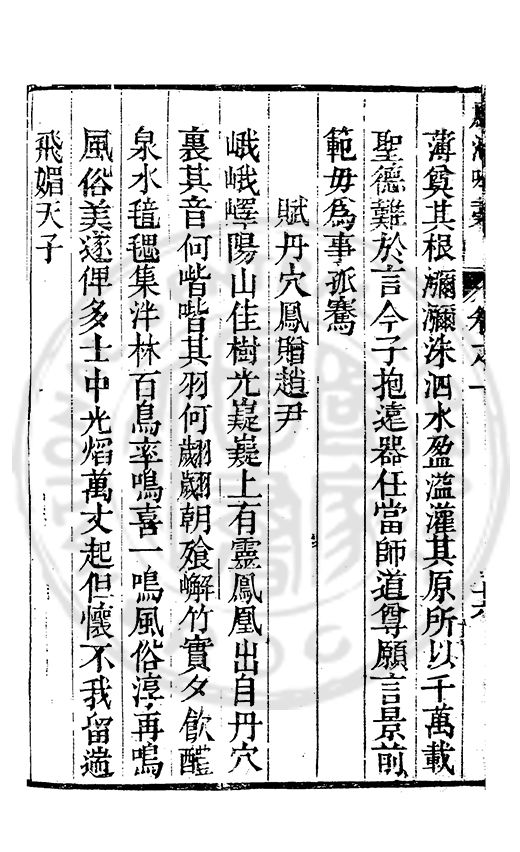 薄奠其根瀰瀰洙泗水盈溢灌其原所以千萬載
聖德難於言今子抱遠器任當師道尊願言景前
範毋為事孤騫
賦丹穴鳳贈趙尹
峨峨嶧陽山佳樹光嶷嶷上有靈鳳凰出自丹穴
裏其音何喈喈其羽何翽翽朝飱嶰竹實夕飲醴
泉水毰毸集泮林百鳥率鳴喜一鳴風俗淳再鳴
風俗美遂俾多士中光焰萬丈起但懷不我留遄
飛媚天子